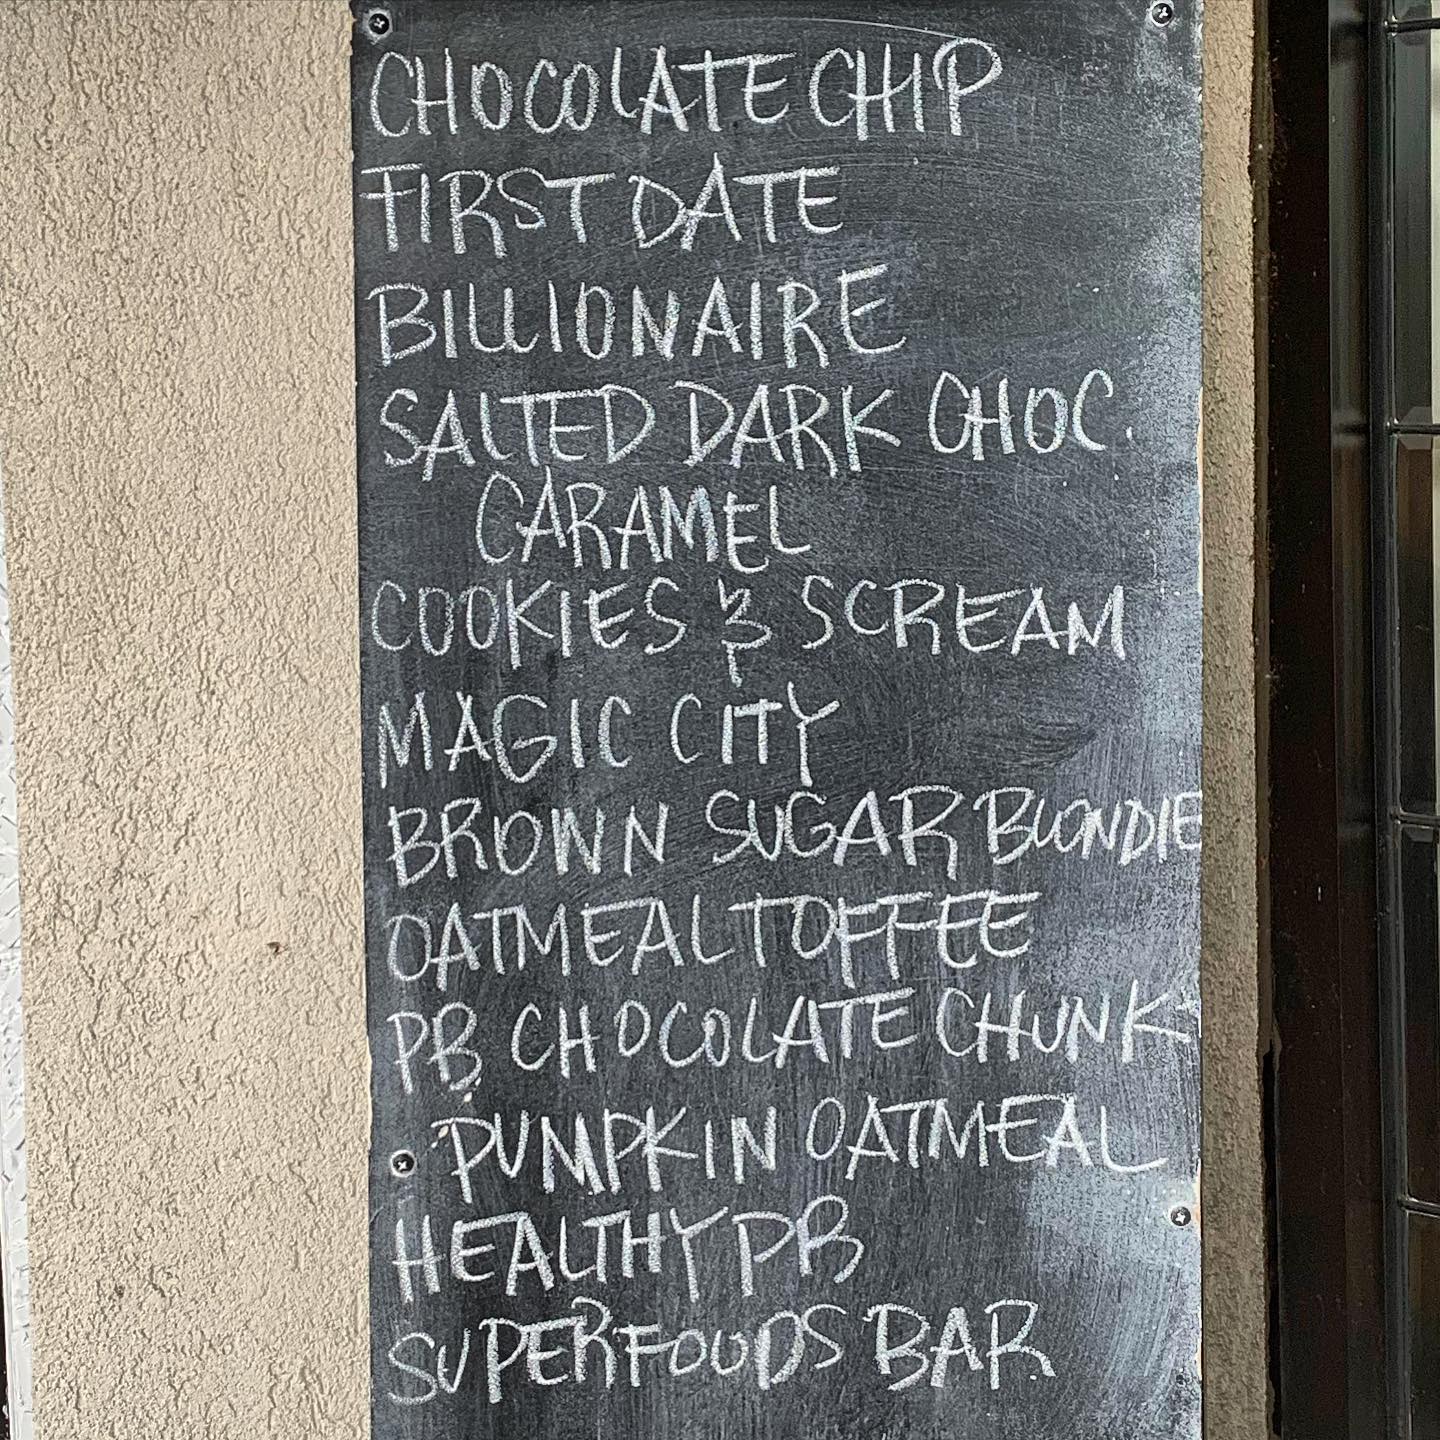 CHOCOLATE CHIP
FIRST DATE
BILLIONAIRE
SALTED DARK CHOC.
CARAMEL
COOKIES & SCREAM
MAGIC CITY
BROWN SUGAR BLONDIE
OATMEAL TOFFEE
PB CHOCOLATE CHUNK
PUMPKIN OATMEAL
HEALTHY PB
SUPERFOODS BAR